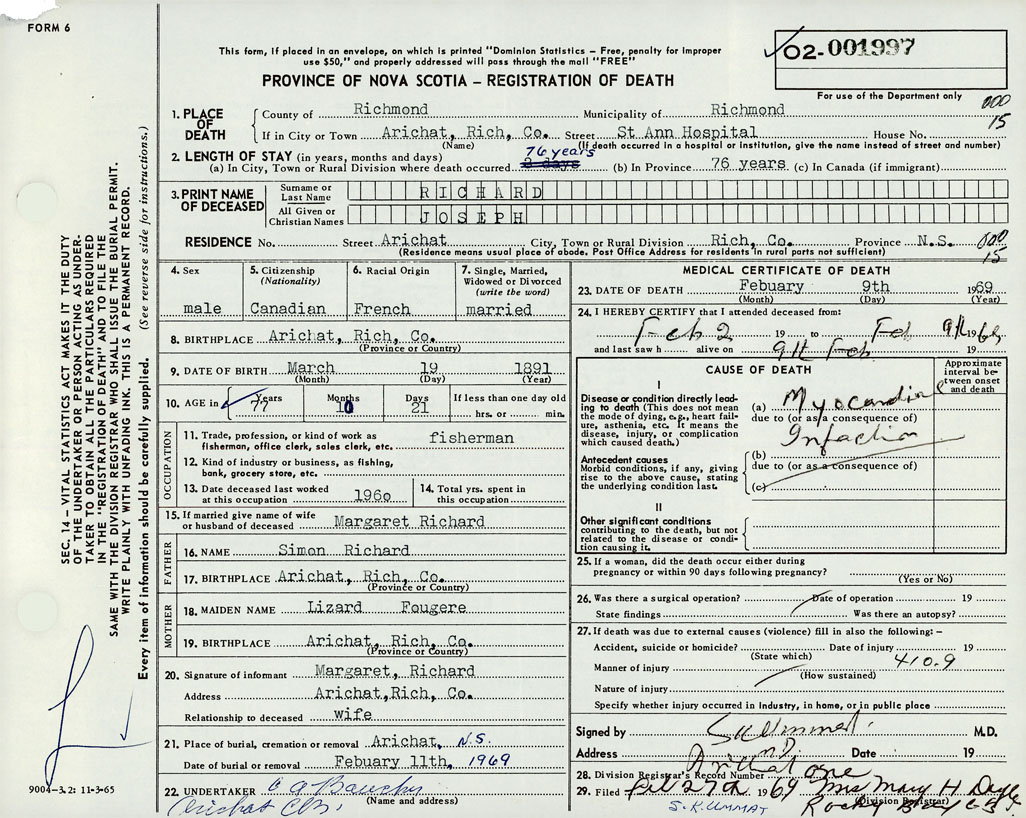 FORM 6
This form, if placed in an envelope, on which is printed "Dominion Statistics – Free, penalty for improper
use $50," and properly addressed will pass through the mail "FREE"
PROVINCE OF NOVA SCOTIA – REGISTRATION OF DEATH
02-001997
For use of the Department only
1. PLACE OF DEATH
County of Richmond Municipality of Richmond
000
15
If in City or Town Arichat, Rich, Co. Street St Ann Hospital House No.
(Name) (If death occurred in a hospital or institution, give the name instead of street and number)
2. LENGTH OF STAY (in years, months and days) 76 years
(a) In City, Town or Rural Division where death occurred (b) In Province 76 years (c) In Canada (if immigrant)
3. PRINT NAME OF DECEASED
Surname or Last Name RICHARD
All Given or Christian Names JOSEPH
RESIDENCE No. Street Arichat City, Town or Rural Division Rich, Co. Province N.S. 000
15
(Residence means usual place of abode. Post Office Address for residents in rural parts not sufficient)
4. Sex
male
5. Citizenship
(Nationality)
Canadian
6. Racial Origin
French
7. Single, Married,
Widowed or Divorced
(write the word)
married
8. BIRTHPLACE Arichat, Rich, Co.
(Province or Country)
9. DATE OF BIRTH March 19 1891
(Month) (Day) (Year)
10. AGE in Years Months Days If less than one day old
77 10 21 hrs. or min.
OCCUPATION
11. Trade, profession, or kind of work as
fisherman, office clerk, sales clerk, etc. fisherman
12. Kind of industry or business, as fishing,
bank, grocery store, etc.
13. Date deceased last worked
at this occupation 1960
14. Total yrs. spent in
this occupation
15. If married give name of wife
or husband of deceased Margaret Richard
FATHER
16. NAME Simon Richard
17. BIRTHPLACE Arichat, Rich, Co.
(Province or Country)
MOTHER
18. MAIDEN NAME Lizard Fougere
19. BIRTHPLACE Arichat, Rich, Co.
(Province or Country)
20. Signature of informant Margaret, Richard
Address Arichat,Rich, Co.
Relationship to deceased wife
21. Place of burial, cremation or removal Arichat, N.S.
Date of burial or removal Febuary 11th, 1969
22. UNDERTAKER
(Name and address)
Arichat C.B.
MEDICAL CERTIFICATE OF DEATH
23. DATE OF DEATH Febuary 9th 1969
(Month) (Day) (Year)
24. I HEREBY CERTIFY that I attended deceased from:
Feb 2 19 to Feb 9th 1969
and last saw h alive on 9th Feb 19
CAUSE OF DEATH
Approximate
interval be-
tween onset
and death
I
Disease or condition directly lead-
ing to death (This does not mean
the mode of dying, e.g., heart fail-
ure, asthenia, etc. It means the
disease, injury, or complication
which caused death.)
(a) Myocardial
due to (or as a consequence of)
Infaction
Antecedent causes
Morbid conditions, if any, giving
rise to the above cause, stating
the underlying condition last.
(b)
due to (or as a consequence of)
(c)
II
Other significant conditions
contributing to the death, but not
related to the disease or condi-
tion causing it.
25. If a woman, did the death occur either during
pregnancy or within 90 days following pregnancy?
(Yes or No)
26. Was there a surgical operation? Date of operation 19
State findings Was there an autopsy?
27. If death was due to external causes (violence) fill in also the following: –
Accident, suicide or homicide? Date of injury 19
(State which)
410.9
Manner of injury
(How sustained)
Nature of injury
Specify whether injury occurred in industry, in home, or in public place
Signed by M.D.
Address Arichat Date 19
28. Division Registrar's Record Number one
29. Filed 1969 Mrs Mary H Doyle
(Division Registrar)
S.K.UMMAT
SEC. 14 – VITAL STATISTICS ACT MAKES IT THE DUTY
OF THE UNDERTAKER OR PERSON ACTING AS UNDER-
TAKER TO OBTAIN ALL THE PARTICULARS REQUIRED
IN THE "REGISTRATION OF DEATH" AND TO FILE THE
SAME WITH THE DIVISION REGISTRAR WHO SHALL ISSUE THE BURIAL PERMIT.
WRITE PLAINLY WITH UNFADING INK. THIS IS A PERMANENT RECORD.
Every item of information should be carefully supplied. (See reverse side for instructions.)
9004-3.2: 11-3-65